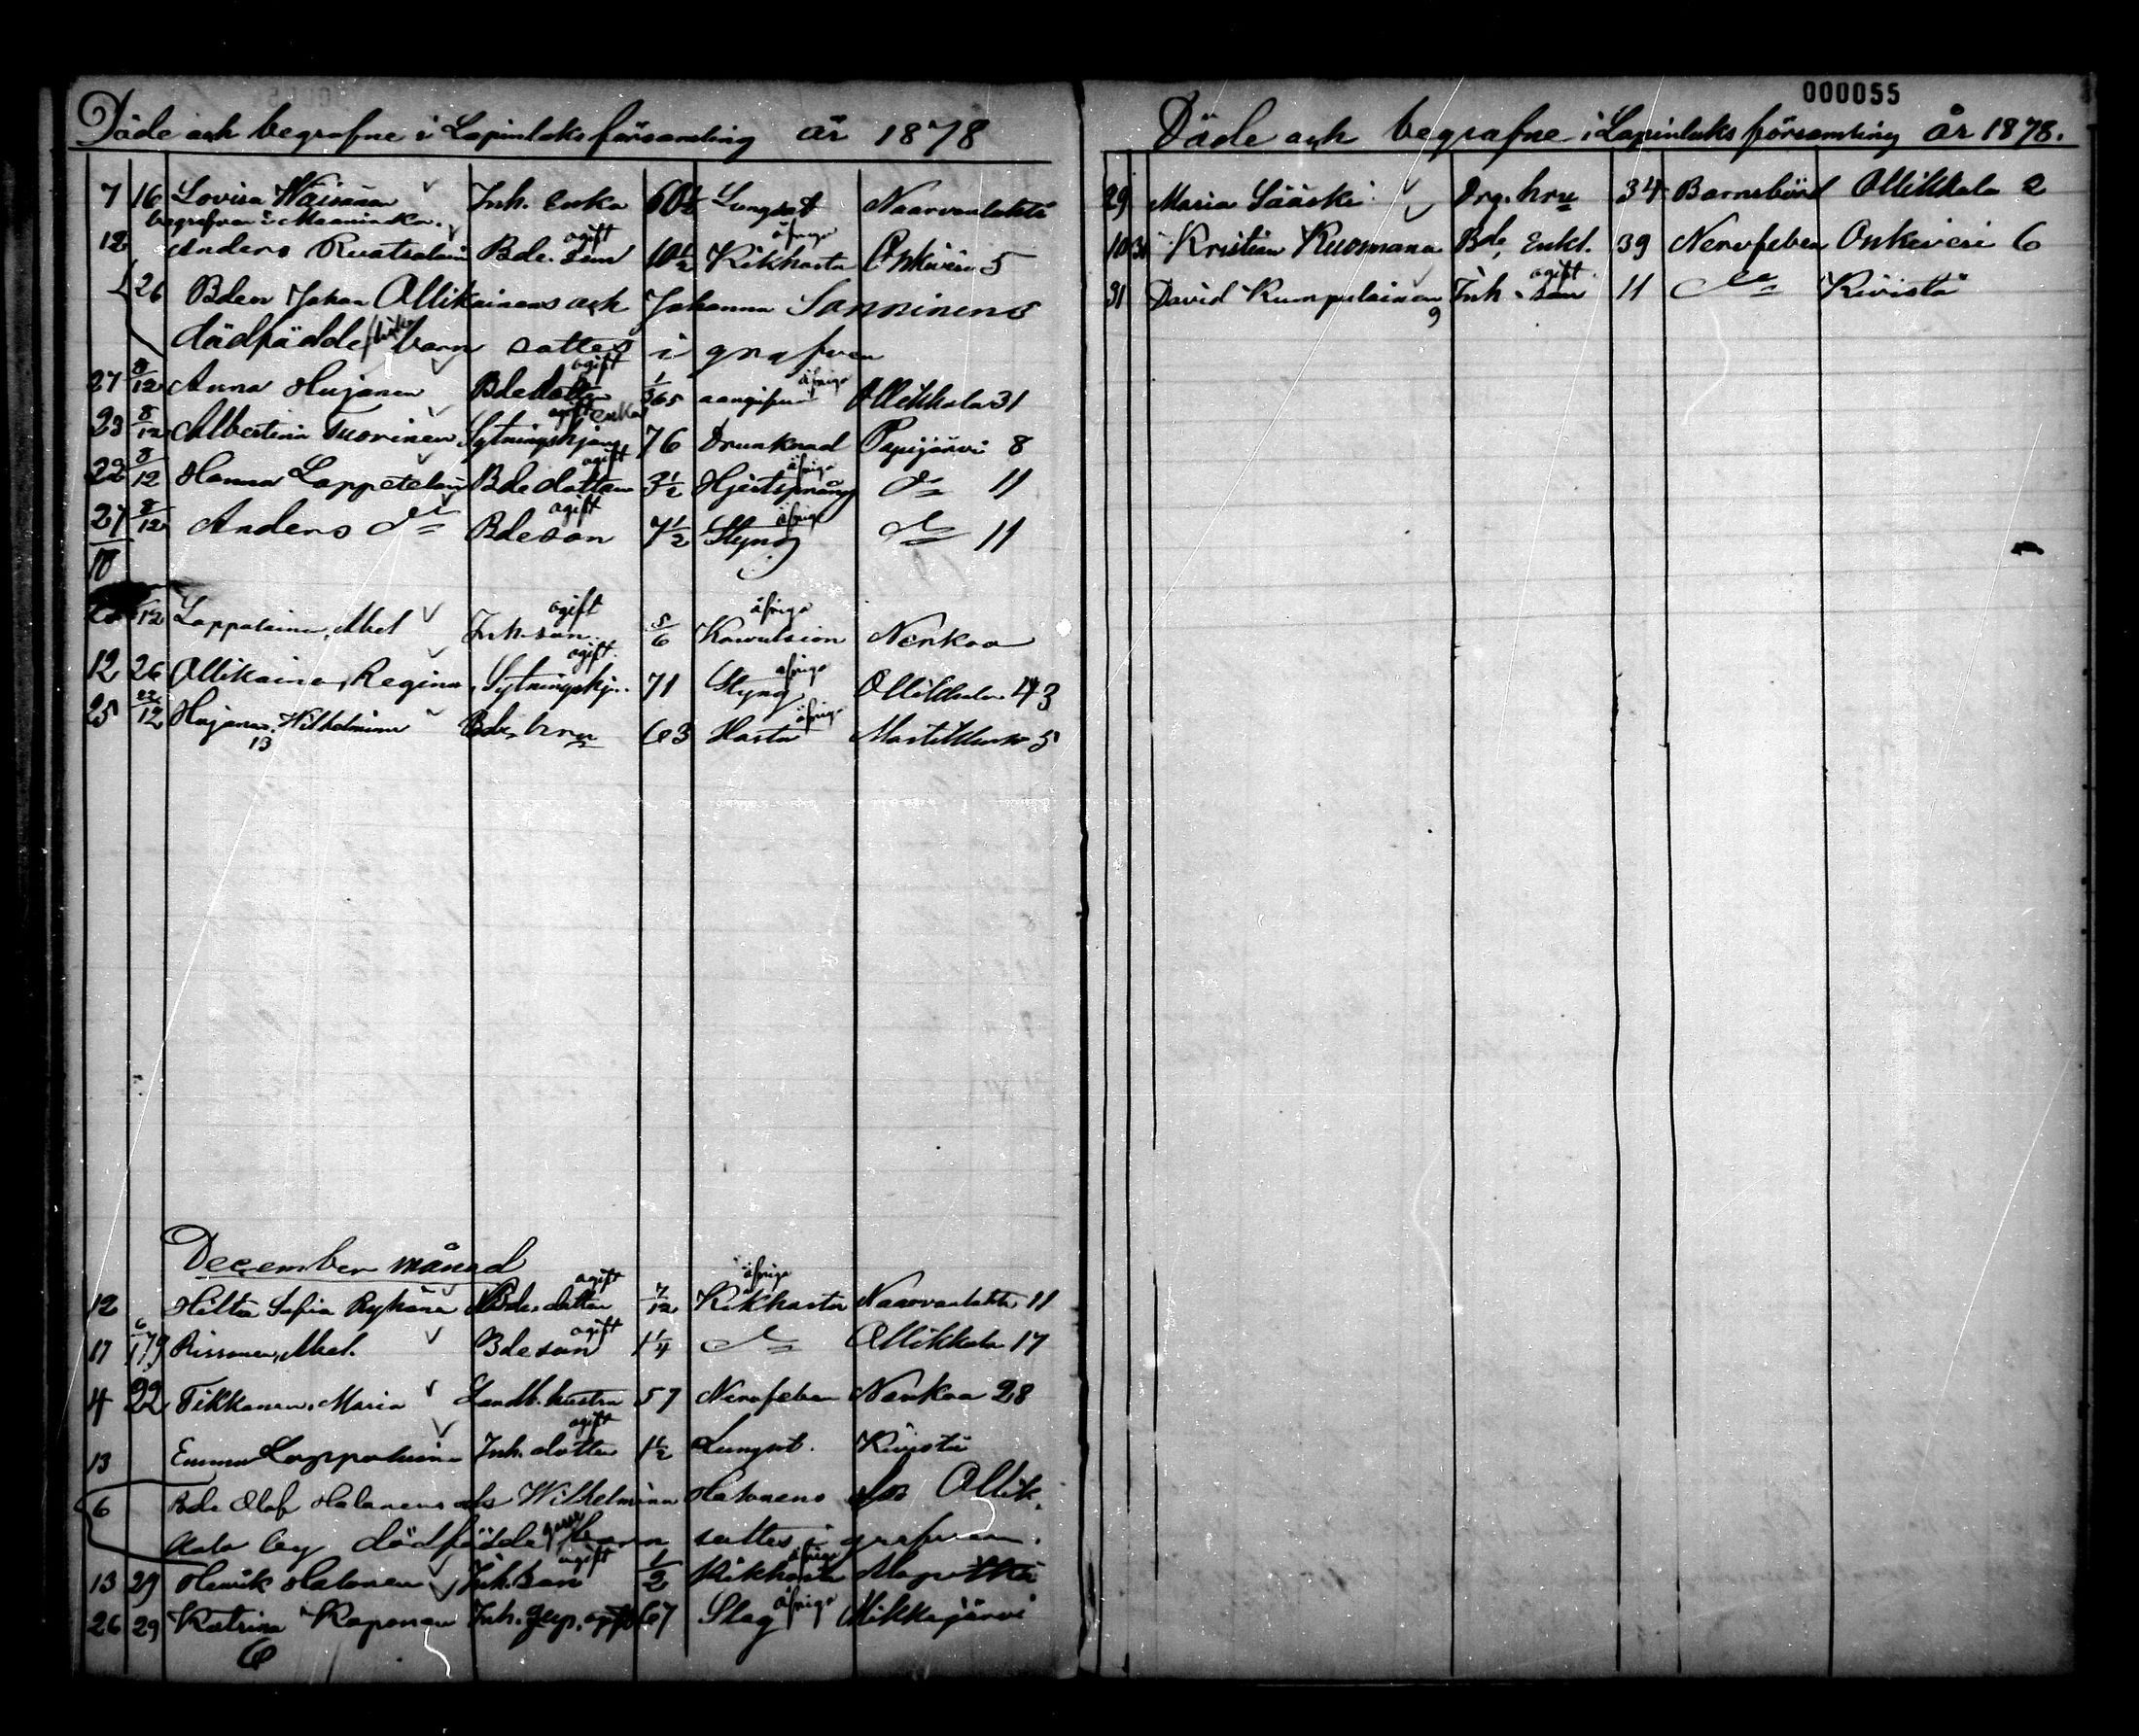 Döde och begrafne i Lapinlaks församling år 1878
7 16 Lovisa Wäisänen Inh. Enka 60½ Lungsot Naarvanlahti
begrafven i Maaninka.
12 Anders Ruotsalain Bde. Son agift 10½ Kikhosta äfriga Onkiveri 5
26 Bden Johan Ollikainens och Johanna Sanninens
dödfödde barn sattes i grafven
27 8/12 Anna Hujanen Bde dotter agift 1/365 oangifven äfriga Ollikkala 31
23 8/12 Albertina Tuorinen Sytningshjon agift enka 76 Drunknad Papijärvi 8
22 8/12 Hanna Lappetelain Bde dotter agift 3½ Hjertsprång äfriga do 11
27 8/12 Anders do Bde son agift 7½ Styng äfriga do 11
10
12 Lappalainen, Abel Inh. son agift 5/6 Konvulsion äfriga Nerkoo
12 26 Ollikainen, Regina Sytningshj. agift 71 Styng äfriga Ollikkala 43
25 22/12 Hujanen, Wilhelmina Bde, hru 63 Hosta äfriga Martikkala 5
13
December månad
12 Hilta Sofia Rykänen Bde. dotter agift 7/12 Kikhosta äfriga Naarvanlahti 11
17 Rissanen, Abel. Bde son agift 1¼ do Ollikkala 17
4 22 Tikkanen, Maria Landb. hustru 57 Nervfeber Nerkoo 28
13 Emma Lappalainen Inh. dotter agift 1½ Lungsot. Kivistö
6 Bde Olof Halonens och Wilhelmina Halonens från Ollik.
kala by dödfödde gosse barn sattes i grafven.
13 29 Henrik Halonen Inh. Son agift ½ Kikhosta äfriga
26 29 Katrina Koponen Inh. gup. agift 67 Slag äfriga Mikkajärvi
6
000055
Döde och begrafne i Lapinlaks församling år 1878.
29 Maria Sääski Drg. hru 34 Barnsbörd Ollikkala 2
10 31 Kristian Kuosmanen Bde, Enkl. 39 Nervfeber Onkiveri 6
31 David Kumpulainen Inh. son agift 11 do Kivistö
9